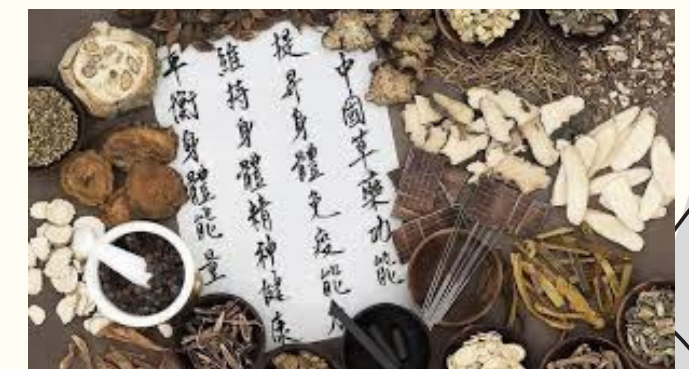 中國草藥功能
提昇身體免疫能力
維持身體精神健康
平衡身體能量